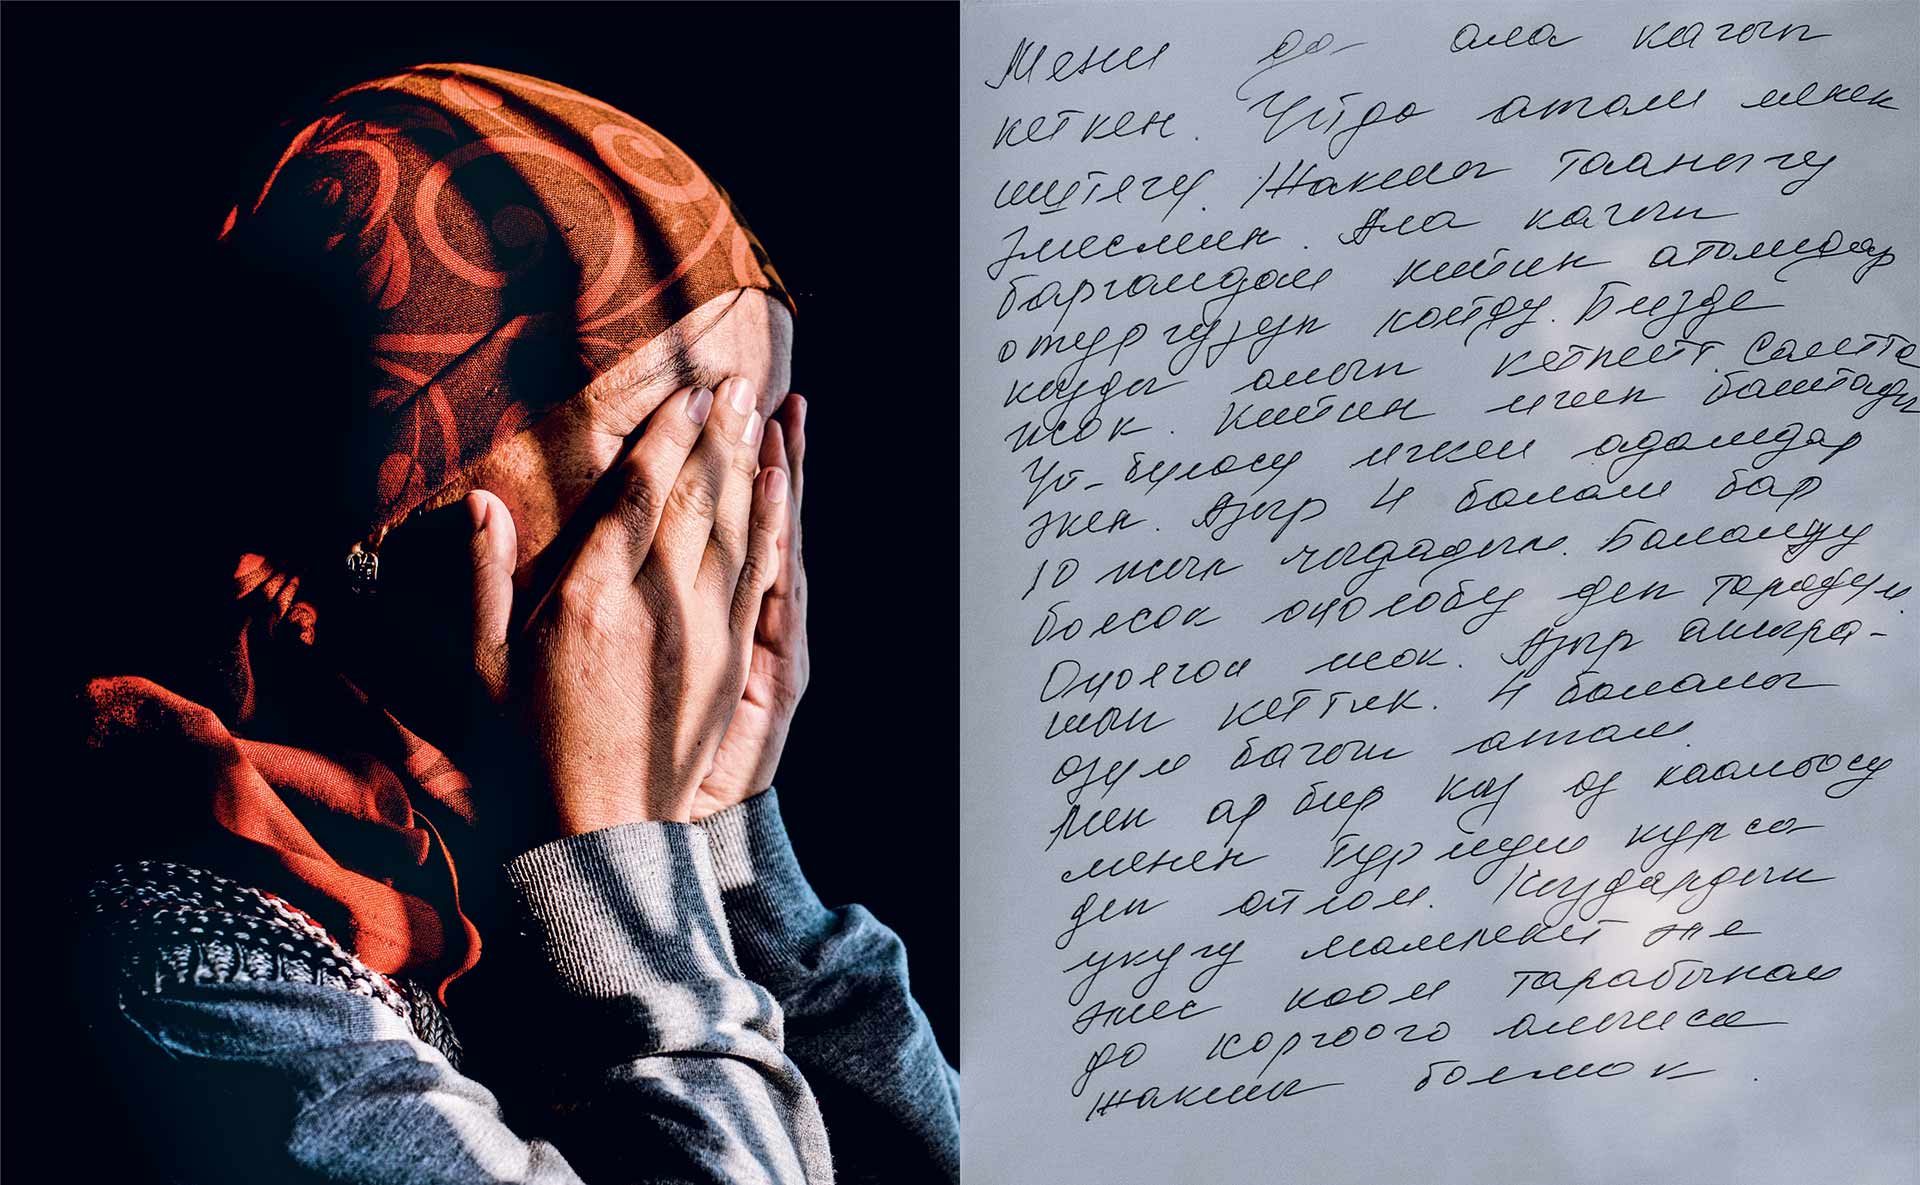 Мени да ала качып
кеткен. Үйдө атам менен
иштечү. Жакшы тааничу
эмесмин. Ала качып
баргандан кийин апамдар
отургузуп койду. Бизде
кызды алып кетпейт салтта
жок. Кийин ичип баштады
Үй-бүлөсү ичкен адамдар
экен. Азыр 4 балам бар
10 жыл чыдадым. Балалуу
болсок оңолобу деп тарадым.
Оңолгон жок. Азыр ажыра-
шып кеттик. 4 баламы
өзүм багып атам.
Мен ар бир кыз өз каалоосу
менен турмуш курса
деп ойлом. Кыздардын
укугу мамлекет эле
эмес коом тарабынан
да коргоого алынса
жакшы болмок.